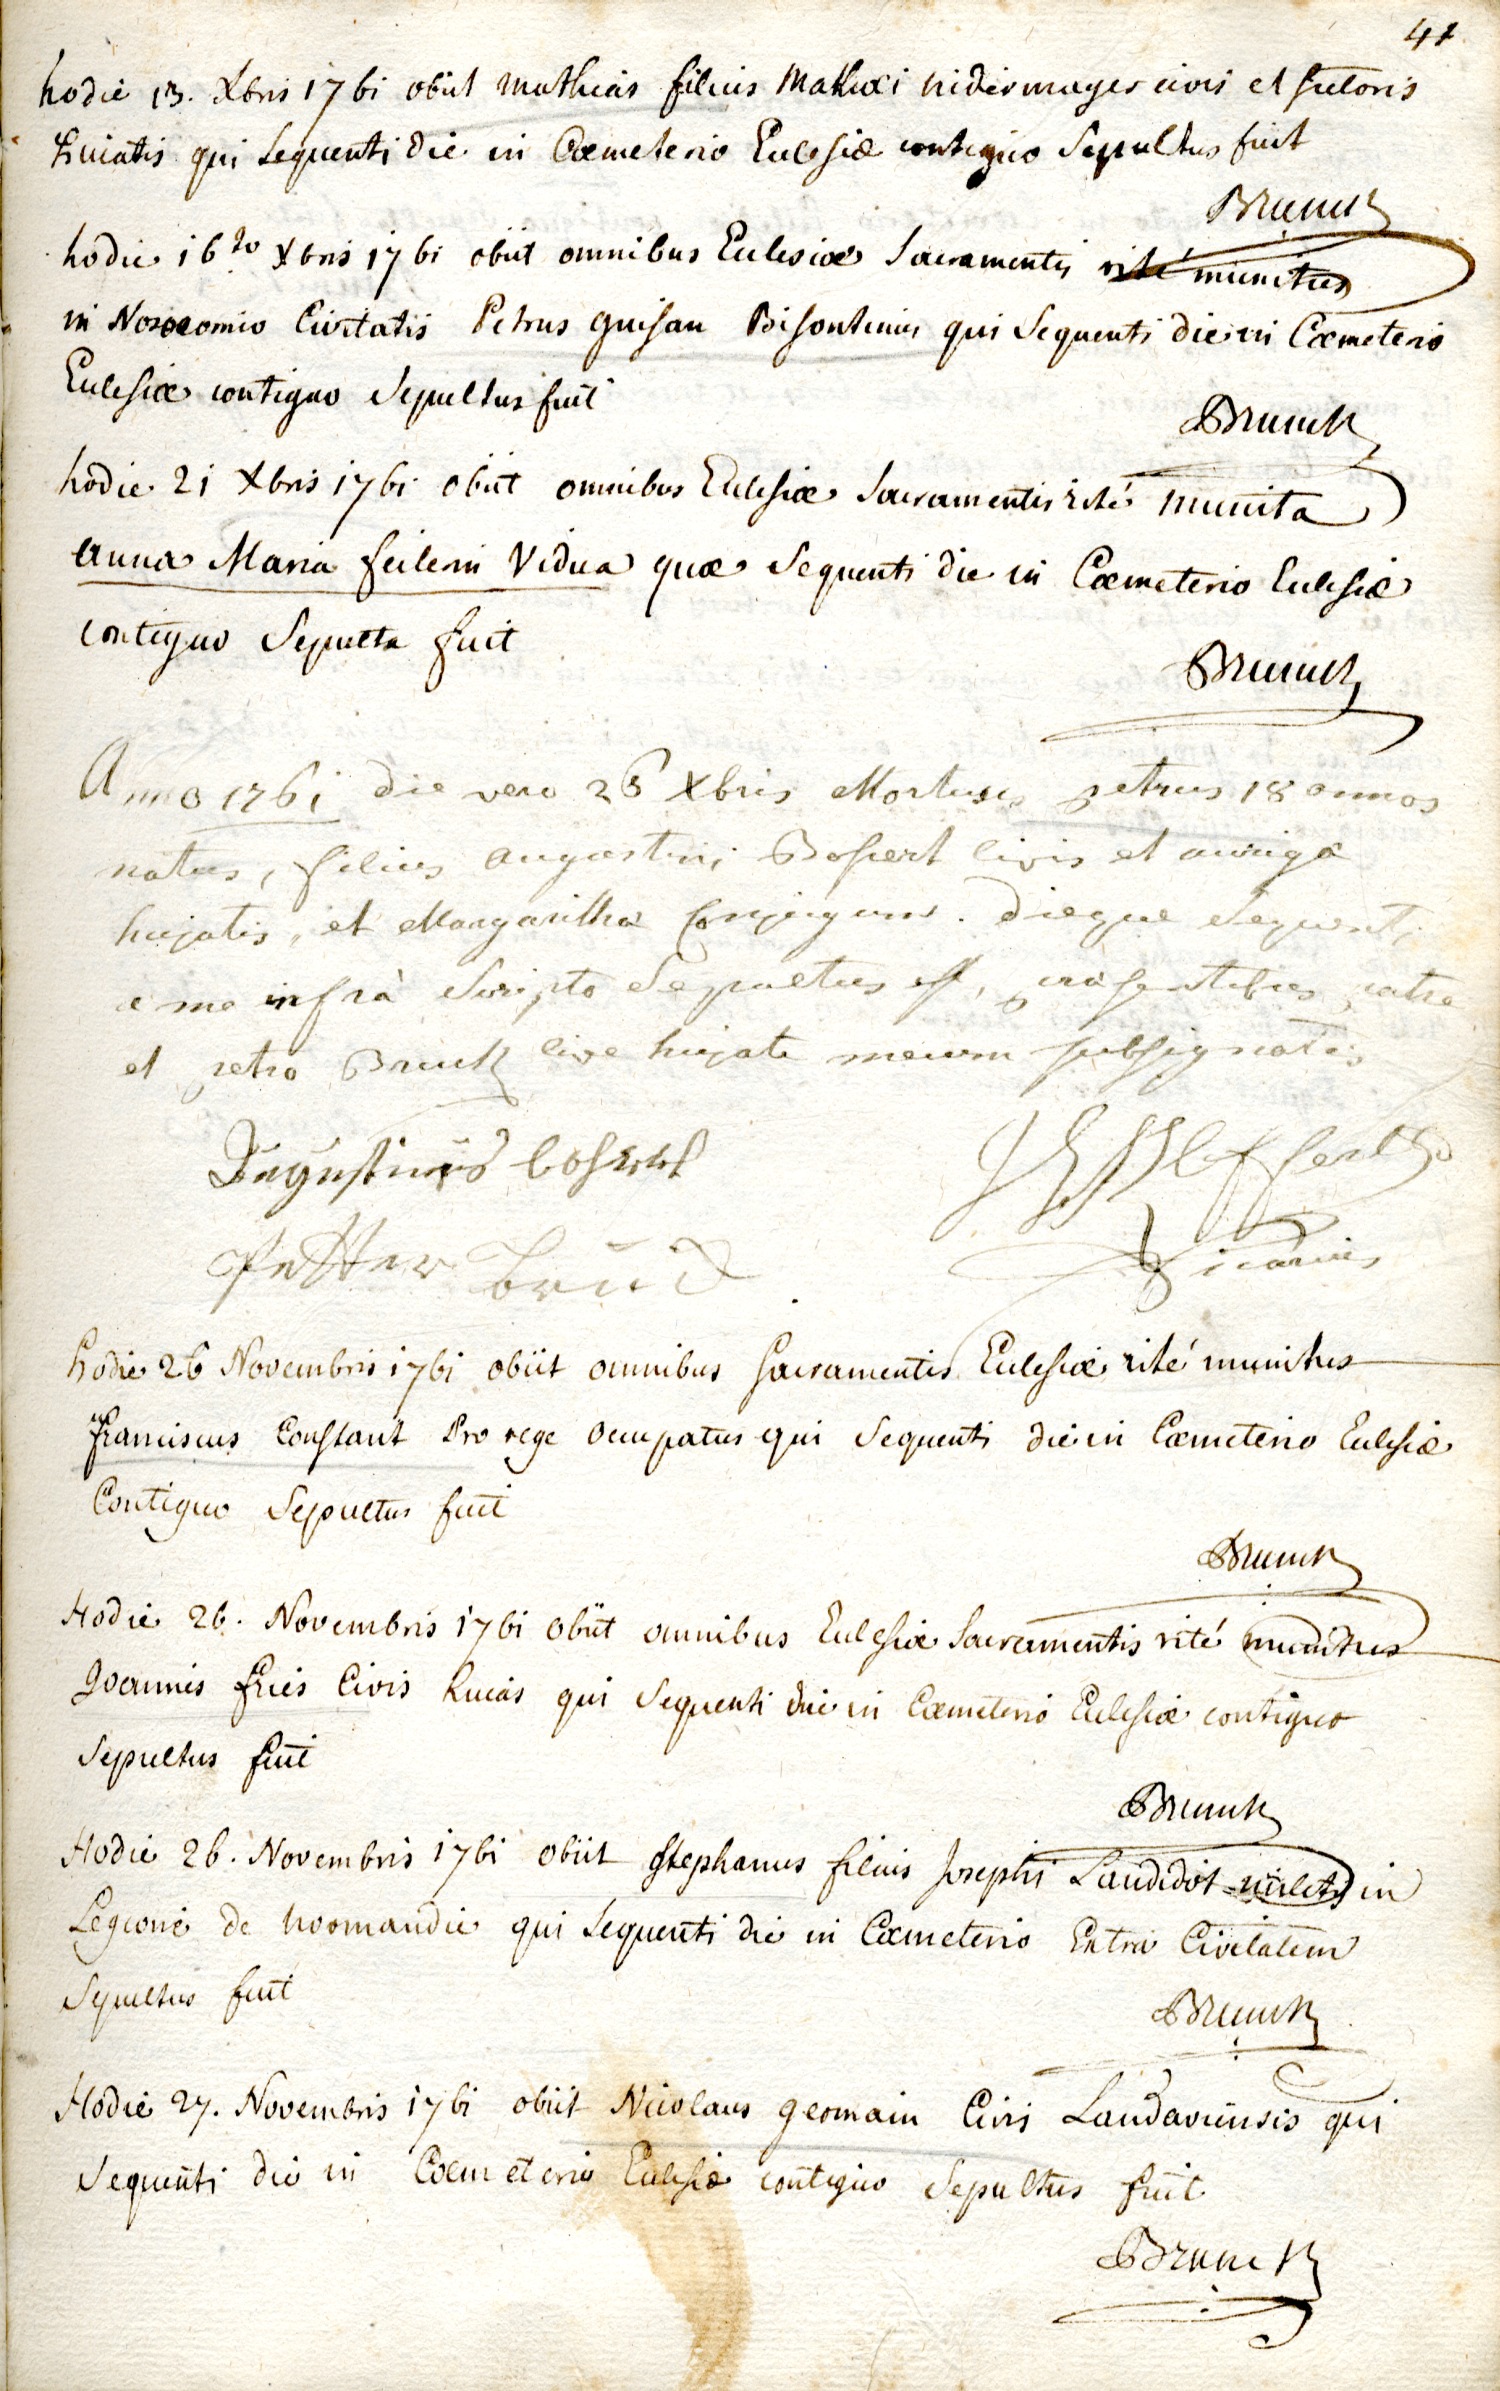 41
hodie 13. Xbris 1761 obiit Mathias filius Mathæi nidermayer civis et sutoris
huiatis qui sequenti die in Cœmeterio Eclesiæ contiguo Sepultus fuit
Brunck
hodie 16to Xbris 1761 obiit omnibus Eclesiæ Sacramentis rité munitus
in Nosocomio Civitatis Petrus guisan Bisontinus qui Sequenti die in Cœmeterio
Eclesiæ contiguo Sepultus fuit
Brunck
hodie 21 Xbris 1761 obiit omnibus Eclesiæ Sacramentis rité munita
anna Maria feilerin Vidua quæ Sequenti die in Cœmeterio Eclesiæ
contiguo Sepulta fuit
Brunck
Anno 1761 die vero 26 Xbris Mortuus petrus 18 annos
natus, filius augustini Bosert civis et aurigæ
hujatis, et Margarithæ Conjugum. dieque Sequenti
a me infrà Scripto Sepultus est, præsentibus patre
et petro Bruck cive hujate mecum subsignatis
Augustinus bosert
Petter bruck
Vicarius
hodie 26 Novembris 1761 obiit omnibus Sacramentis Eclesiæ rité munitus
franciscus Constant Pro rege occupatus qui Sequenti die in Cœmeterio Eclesiæ
Contiguo Sepultus fuit
Brunck
Hodie 26. Novembris 1761 obiit omnibus Eclesiæ Sacramentis rité munitus
Joannes fries Civis huias qui Sequenti die in Cœmeterio Eclesiæ contiguo
Sepultus fuit
Brunck
Hodie 26. Novembris 1761 obiit Stephanus filius Josephi Landidot militis in
Legione de Normandie qui Sequenti die in Cœmeterio Extra Civitatem
Sepultus fuit
Brunck
Hodie 27. Novembris 1761 obiit Nicolaus germain Civis Landaviensis qui
Sequenti die in Cœmeterio Eclesiæ contiguo Sepultus fuit
Brunck